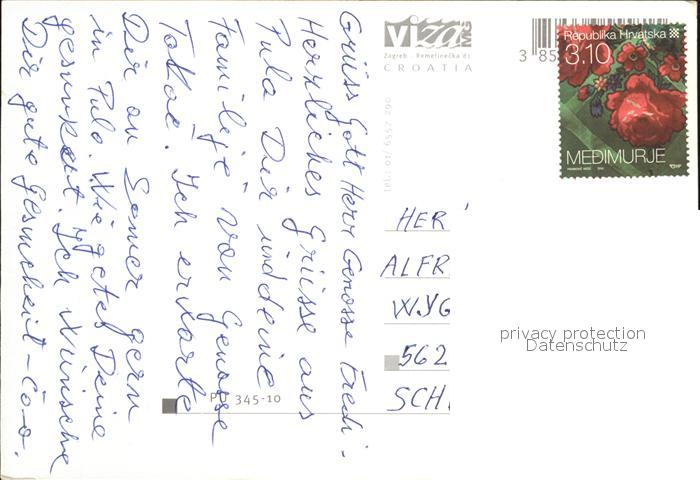 Grüss Gott Herr Genosse Fredi-
Herrliches Grüsse aus
Pula Dir und deine
Familije von Genosse
Tokač. Ich erwarte
Dir on Somer gern
in Pula. Wie getes Deine
gesuntkeit. Ich wünsche
Dir gute Gesundheit-
VIZA MG
Zagreb - Remetinečka 81
CROATIA
tel.: 01/ 6557 290
3 85
Republika Hrvatska
3.10
MEĐIMURJE
HER
ALFR
WYG
562
SCH
PU 345-10
privacy protection
Datenschutz